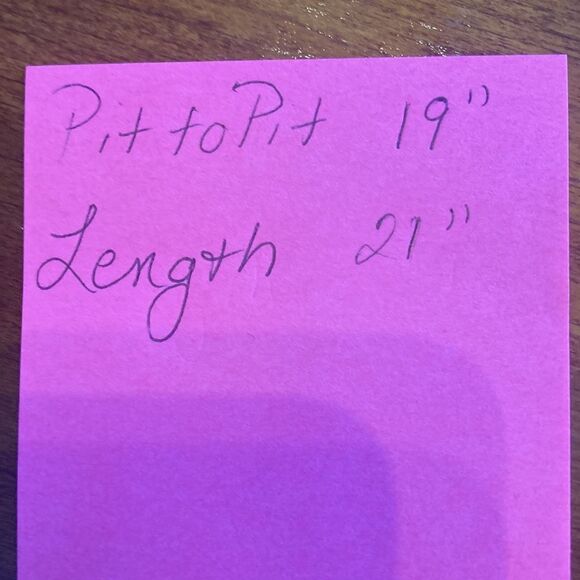 Pit to Pit 19"
Length 21"